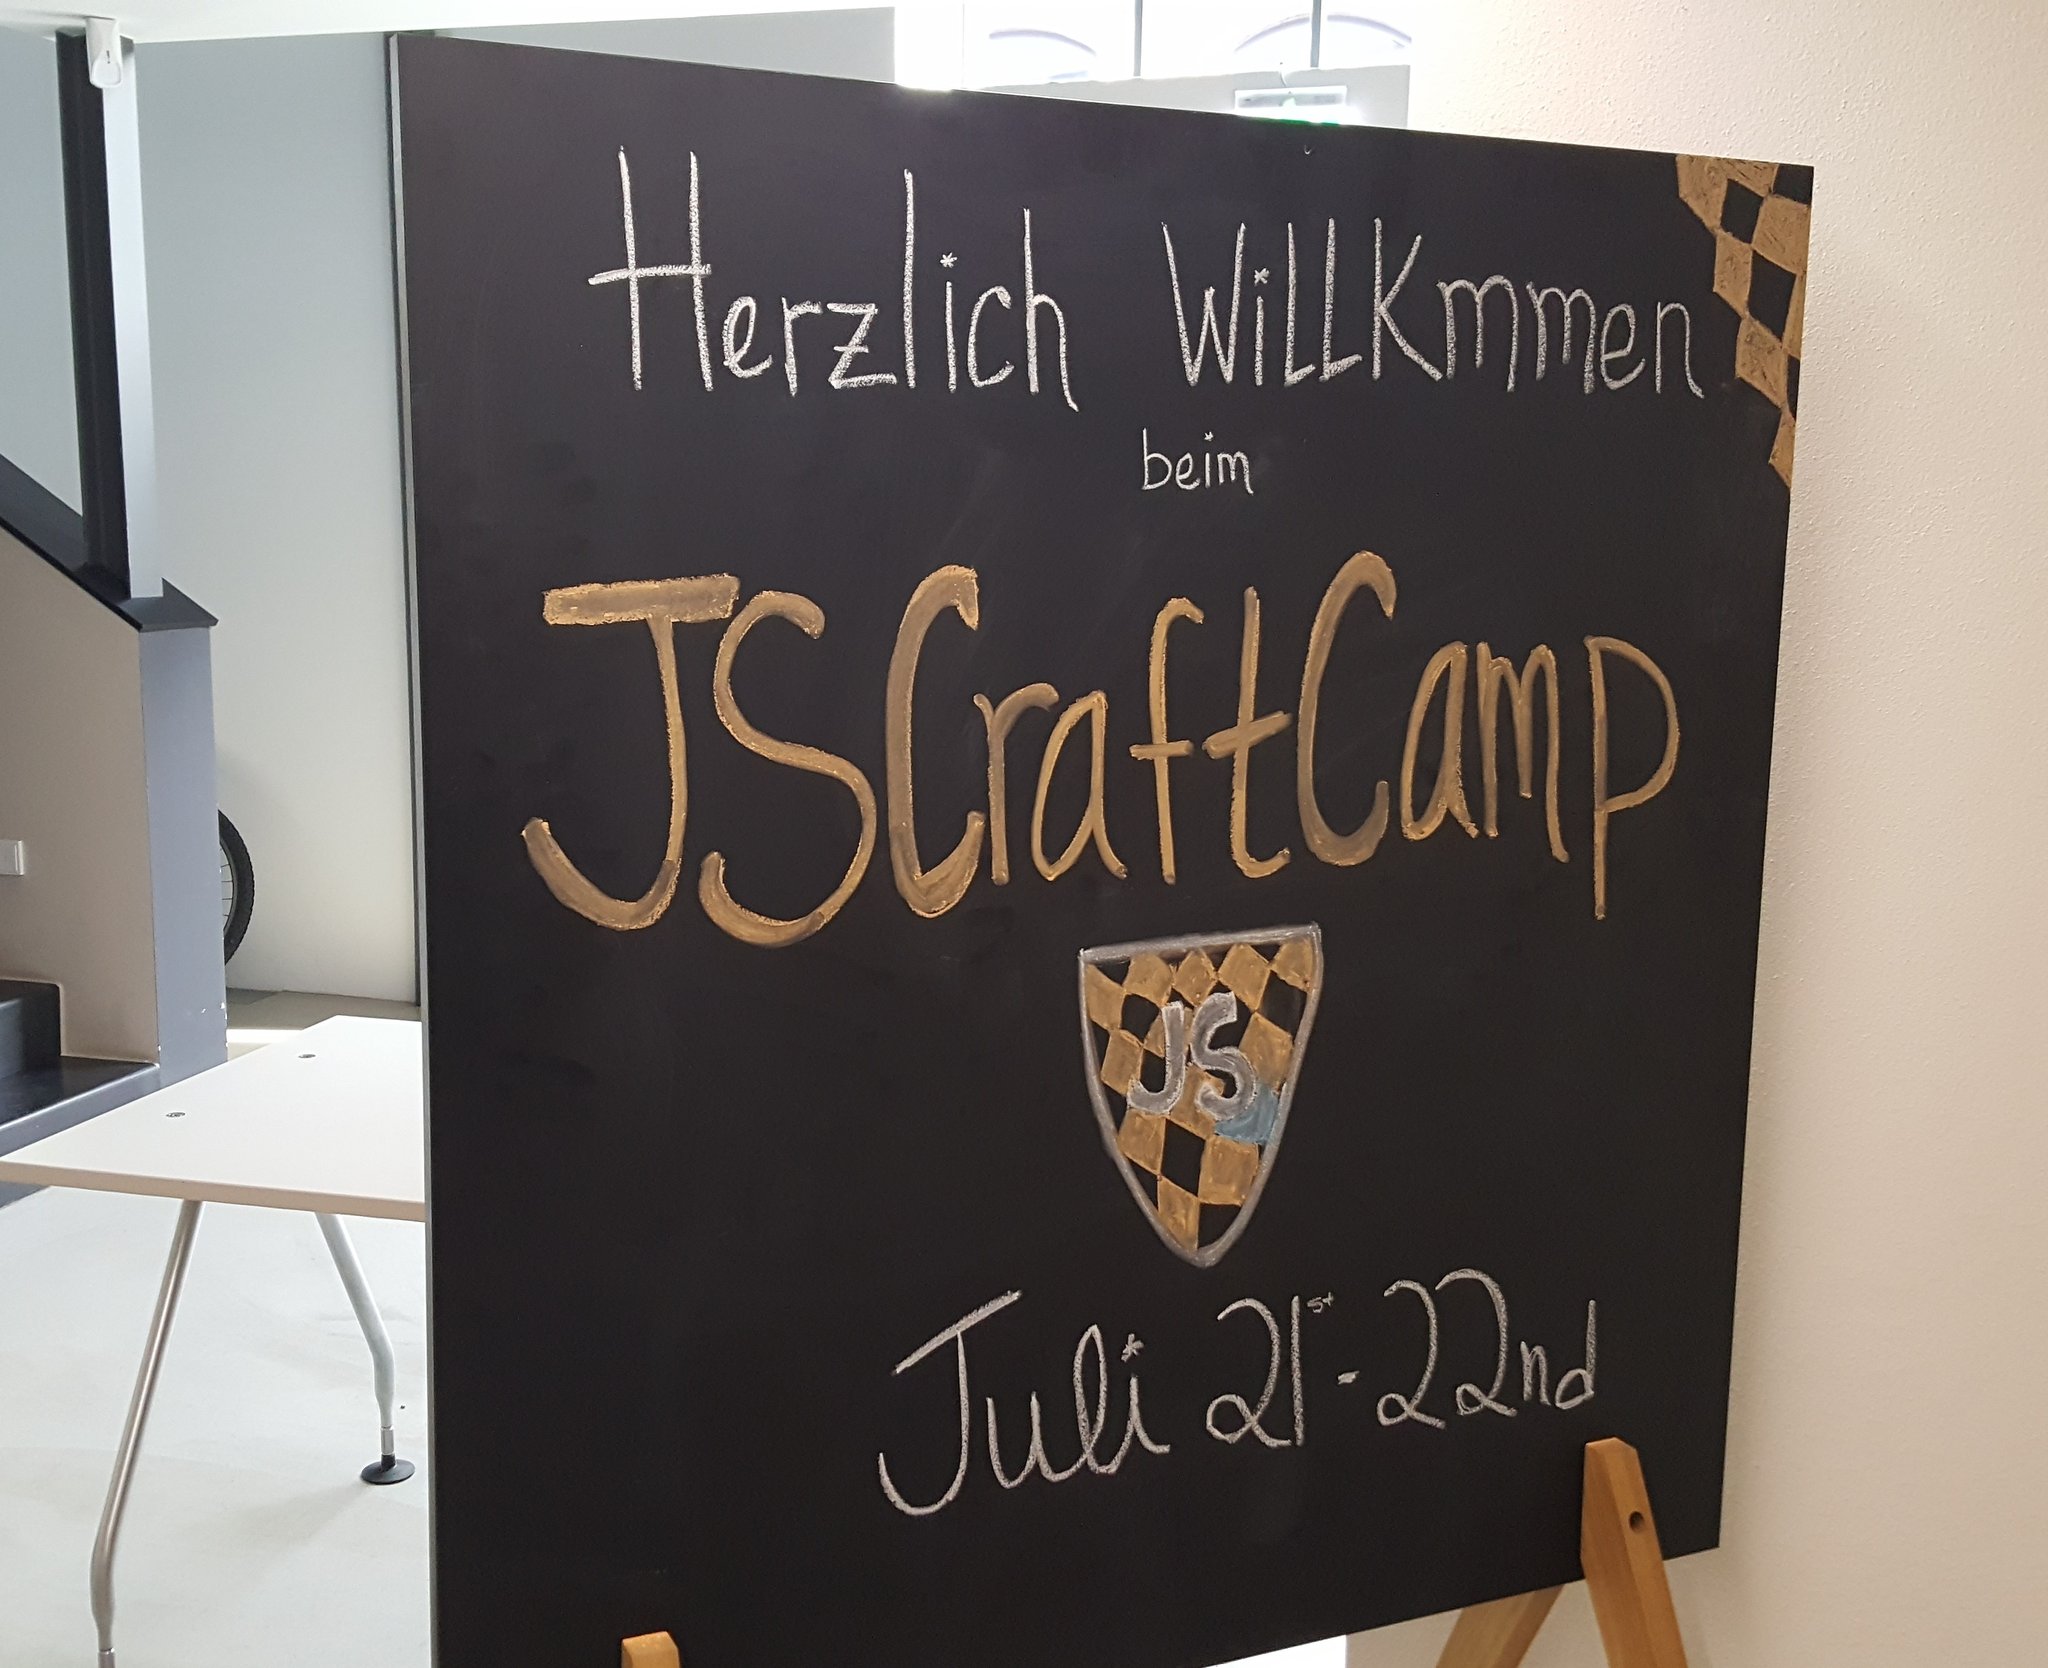 Herzlich WiLLKmmen
beim
JSCraftCamp
JS
Juli 21st - 22nd